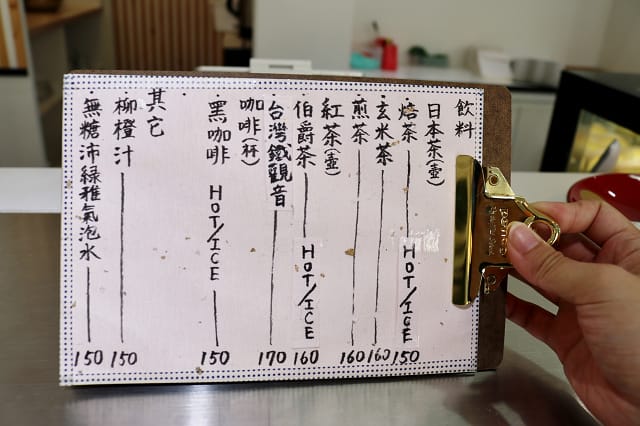 飲料
日本茶(壺)
·焙茶 HOT/ICE 150
·玄米茶 160
·煎茶 160
紅茶(壺)
·伯爵茶 HOT/ICE 160
·台灣鐵觀音 170
咖啡(杯)
·黑咖啡 HOT/ICE 150
其它
·柳橙汁 150
·無糖沛綠雅氣泡水 150